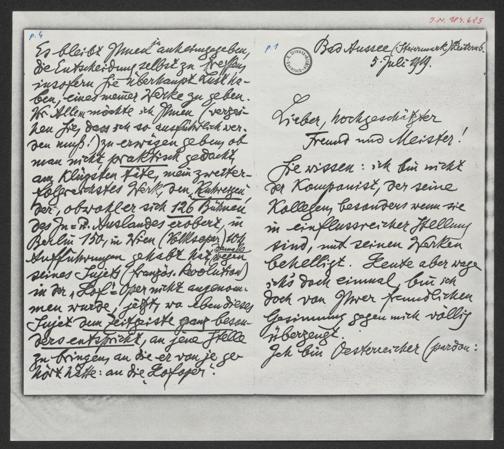 J.N. 184.685
p.1
Bad Aussee (Steiermark)
5. Juli 1919.
Lieber, hochgeschätzter
Freund und Meister!
Sie wissen: ich bin nicht
der Komponist, der seine
Kollegen, besonders wenn sie
in einflussreicher Stellung
sind, mit seinen Werken
behelligt. Heute aber wage
ichs doch einmal, bin ich
doch von Ihrer freundlichen
Gesinnung gegen mich völlig
überzeugt.
Ich bin Oesterreicher (pardon:
p.4
Es bleibt Ihnen anheimgegeben,
die Entscheidung selbst zu treffen,
insofern Sie überhaupt Lust ha-
ben, eines meiner Werke zu geben.
Vor Allem möchte ich Ihnen, (verzei-
hen Sie, dass ich so ausführlich wer-
den muß!) zu erwägen geben, ob
man nicht praktisch gedacht,
am klügsten täte, mein zweiter-
folgreichstes Werk, den „Kuhreigen"
der, obwohl er sich 126 Bühnen
des In- u. Auslandes erobert, in
Berlin 150, in Wien (Volksoper) 104
Aufführungen gehabt hat, wegen
seines Sujets (französ. Revolution)
in der „Hof"-Oper nicht angenom-
men wurde, jetzt, wo eben dieses
Sujet dem Zeitgeiste ganz beson-
ders entspricht, an jene Stelle
zu bringen, an die er von je ge-
hört hätte: an die „Hofoper".